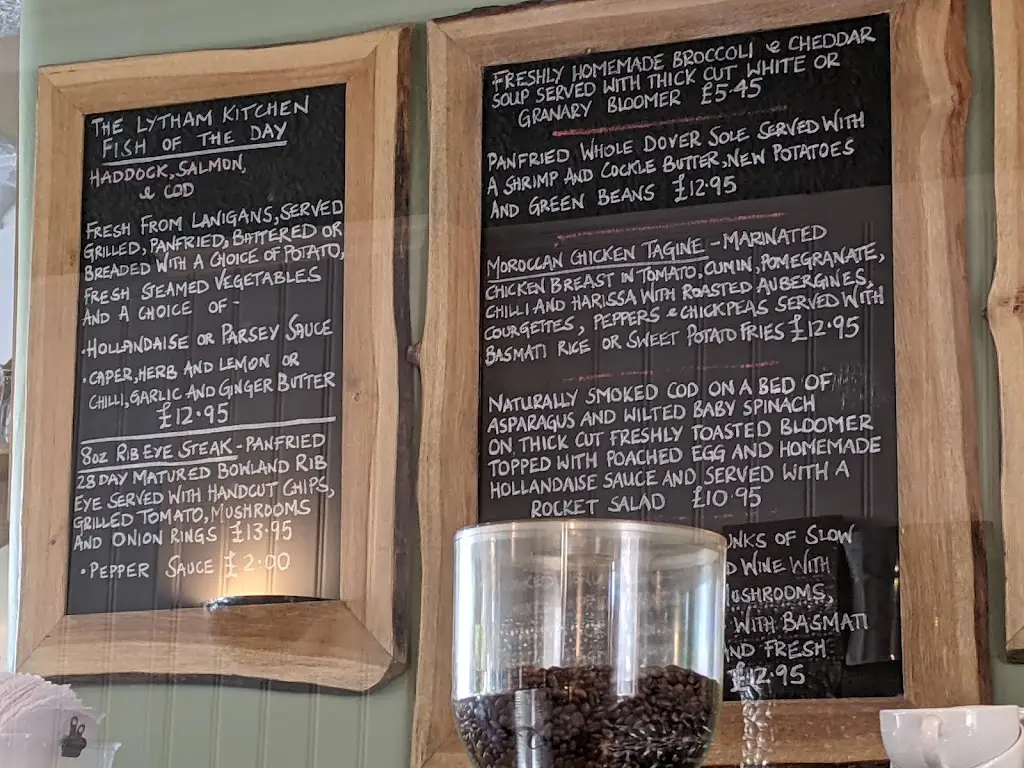 THE LYTHAM KITCHEN
FISH OF THE DAY
HADDOCK, SALMON,
& COD
FRESH FROM LANIGANS, SERVED
GRILLED, PANFRIED, BATTERED OR
BREADED WITH A CHOICE OF POTATO,
FRESH STEAMED VEGETABLES
AND A CHOICE OF -
• HOLLANDAISE OR PARSEY SAUCE
• CAPER, HERB AND LEMON OR
CHILLI, GARLIC AND GINGER BUTTER
£12.95
8OZ RIB EYE STEAK - PANFRIED
28 DAY MATURED BOWLAND RIB
EYE SERVED WITH HANDCUT CHIPS,
GRILLED TOMATO, MUSHROOMS
AND ONION RINGS £13.95
• PEPPER SAUCE £2.00
FRESHLY HOMEMADE BROCCOLI & CHEDDAR
SOUP SERVED WITH THICK CUT WHITE OR
GRANARY BLOOMER £5.45
PANFRIED WHOLE DOVER SOLE SERVED WITH
A SHRIMP AND COCKLE BUTTER, NEW POTATOES
AND GREEN BEANS £12.95
MOROCCAN CHICKEN TAGINE - MARINATED
CHICKEN BREAST IN TOMATO, CUMIN, POMEGRANATE,
CHILLI AND HARISSA WITH ROASTED AUBERGINES,
COURGETTES, PEPPERS & CHICKPEAS SERVED WITH
BASMATI RICE OR SWEET POTATO FRIES £12.95
NATURALLY SMOKED COD ON A BED OF
ASPARAGUS AND WILTED BABY SPINACH
ON THICK CUT FRESHLY TOASTED BLOOMER
TOPPED WITH POACHED EGG AND HOMEMADE
HOLLANDAISE SAUCE AND SERVED WITH A
ROCKET SALAD £10.95
OF SLOW
WINE WITH
MUSHROOMS,
WITH BASMATI
AND FRESH
£12.95